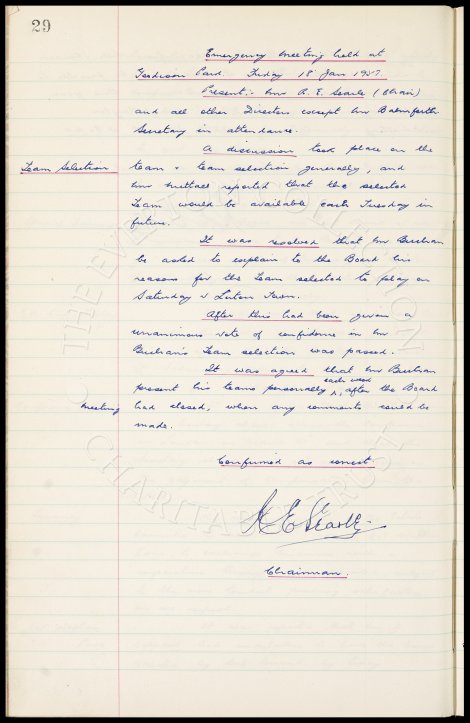 29
Emergency meeting held at
Goodison Park. Friday 18 Jan 1957
Present:- Mr A. E. Searle (Chair)
and all other Directors except Mr
Secretary in attendance.
Team Selection
A discussion took place on the
team & team selection generally, and
Mr Nuttall reported that the selected
Team would be available each Tuesday in
future.
It was resolved that Mr Buchan
be asked to explain to the Board his
reasons for the Team selected to play on
Saturday v Luton Town.
After this had been given a
unanimous vote of confidence in Mr
Buchan's Team selection was passed.
It was agreed that Mr Buchan
present his teams personally each week, after the Board
meeting
had closed, when any comments could be
made.
Confirmed as correct.
A E Searle
Chairman.
THE EVERTON COLLECTION
CHARITABLE TRUST